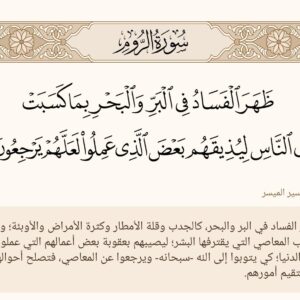 سُورَةُ الرُّومِ
ظَهَرَ ٱلْفَسَادُ فِى ٱلْبَرِّ وَٱلْبَحْرِ بِمَا كَسَبَتْ
ٱلنَّاسِ لِيُذِيقَهُم بَعْضَ ٱلَّذِى عَمِلُوا۟ لَعَلَّهُمْ يَرْجِعُونَ
الميسر
الفساد في البر والبحر، كالجدب وقلة الأمطار وكثرة الأمراض والأوبئة؛ و
المعاصي التي يقترفها البشر؛ ليصيبهم بعقوبة بعض أعمالهم التي عملو
الدنيا؛ كي يتوبوا إلى الله -سبحانه- ويرجعوا عن المعاصي، فتصلح أحوال
أمورهم.